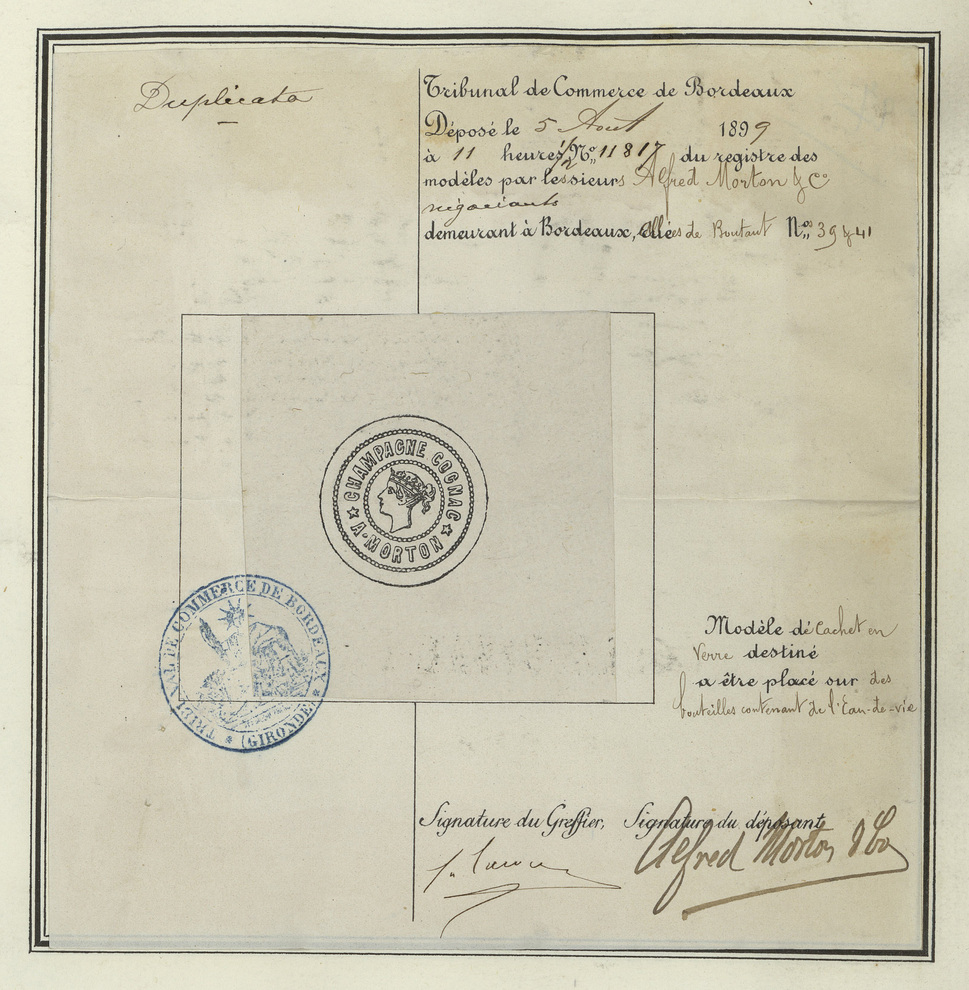 Duplicata
Tribunal de Commerce de Bordeaux
Déposé le 5 Aout 1899
à 11 heures 1/2 Nº 11817 du registre des
modèles par les sieurs Alfred Morton & Cº
négociants
demeurant à Bordeaux, allées de Boutaut Nos 39 & 41
CHAMPAGNE COGNAC
A. MORTON
TRIBUNAL DE COMMERCE DE BORDEAUX
(GIRONDE)
Modèle de cachet en
verre destiné
a être placé sur des
bouteilles contenant de l'Eau-de-vie
Signature du Greffier, Signature du déposant
Alfred Morton & Co